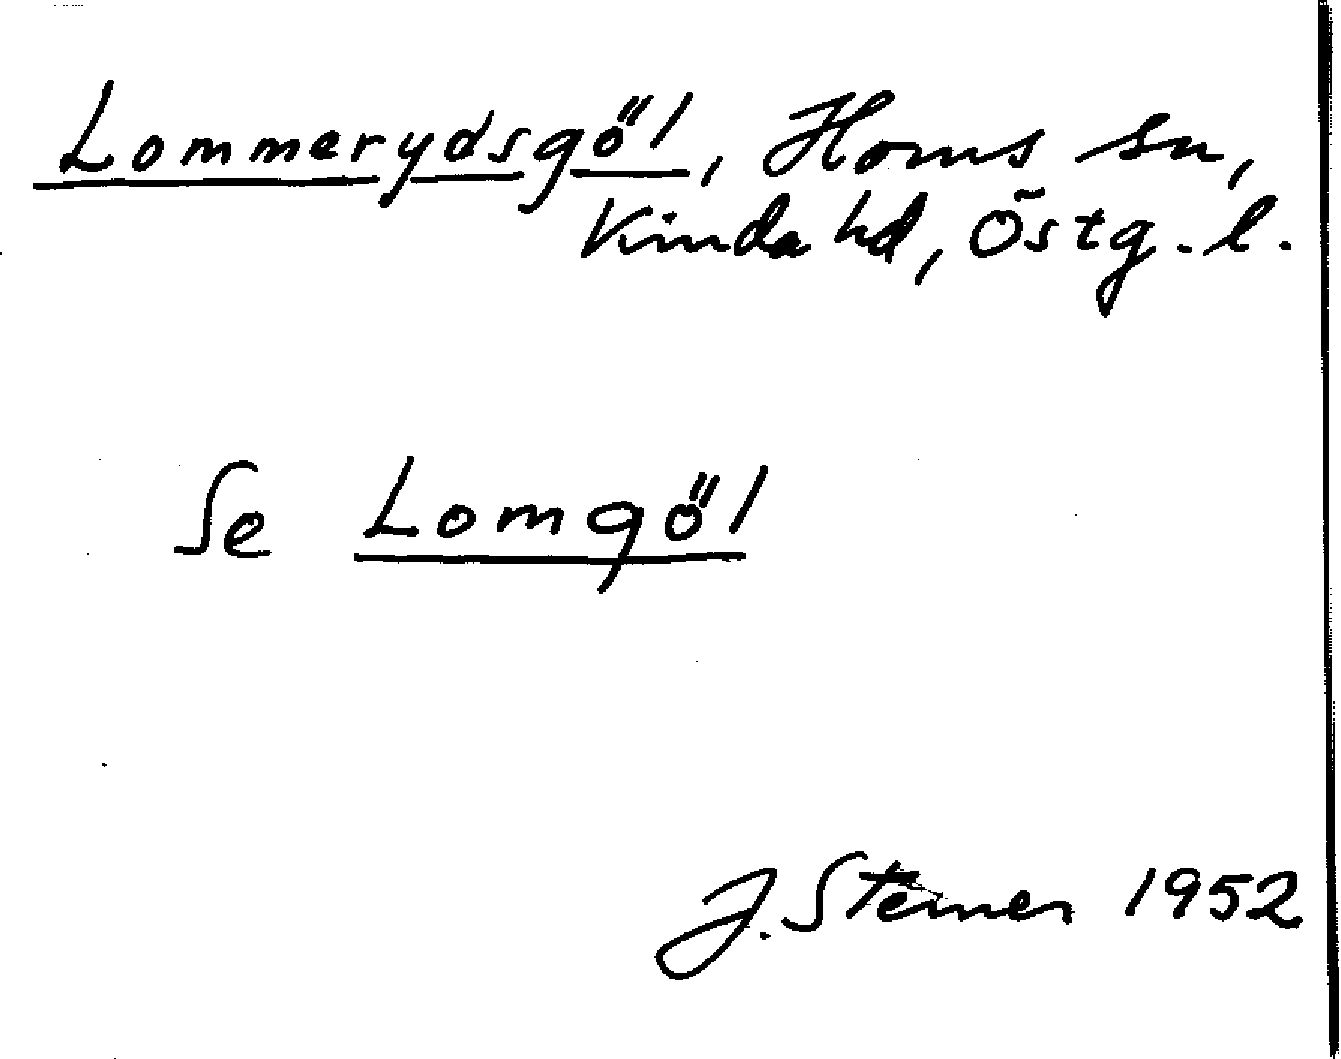 Lommerydsgöl, Horns sn,
Kinda hd, Östg. l.
Se Lomgöl
J. Sterner 1952